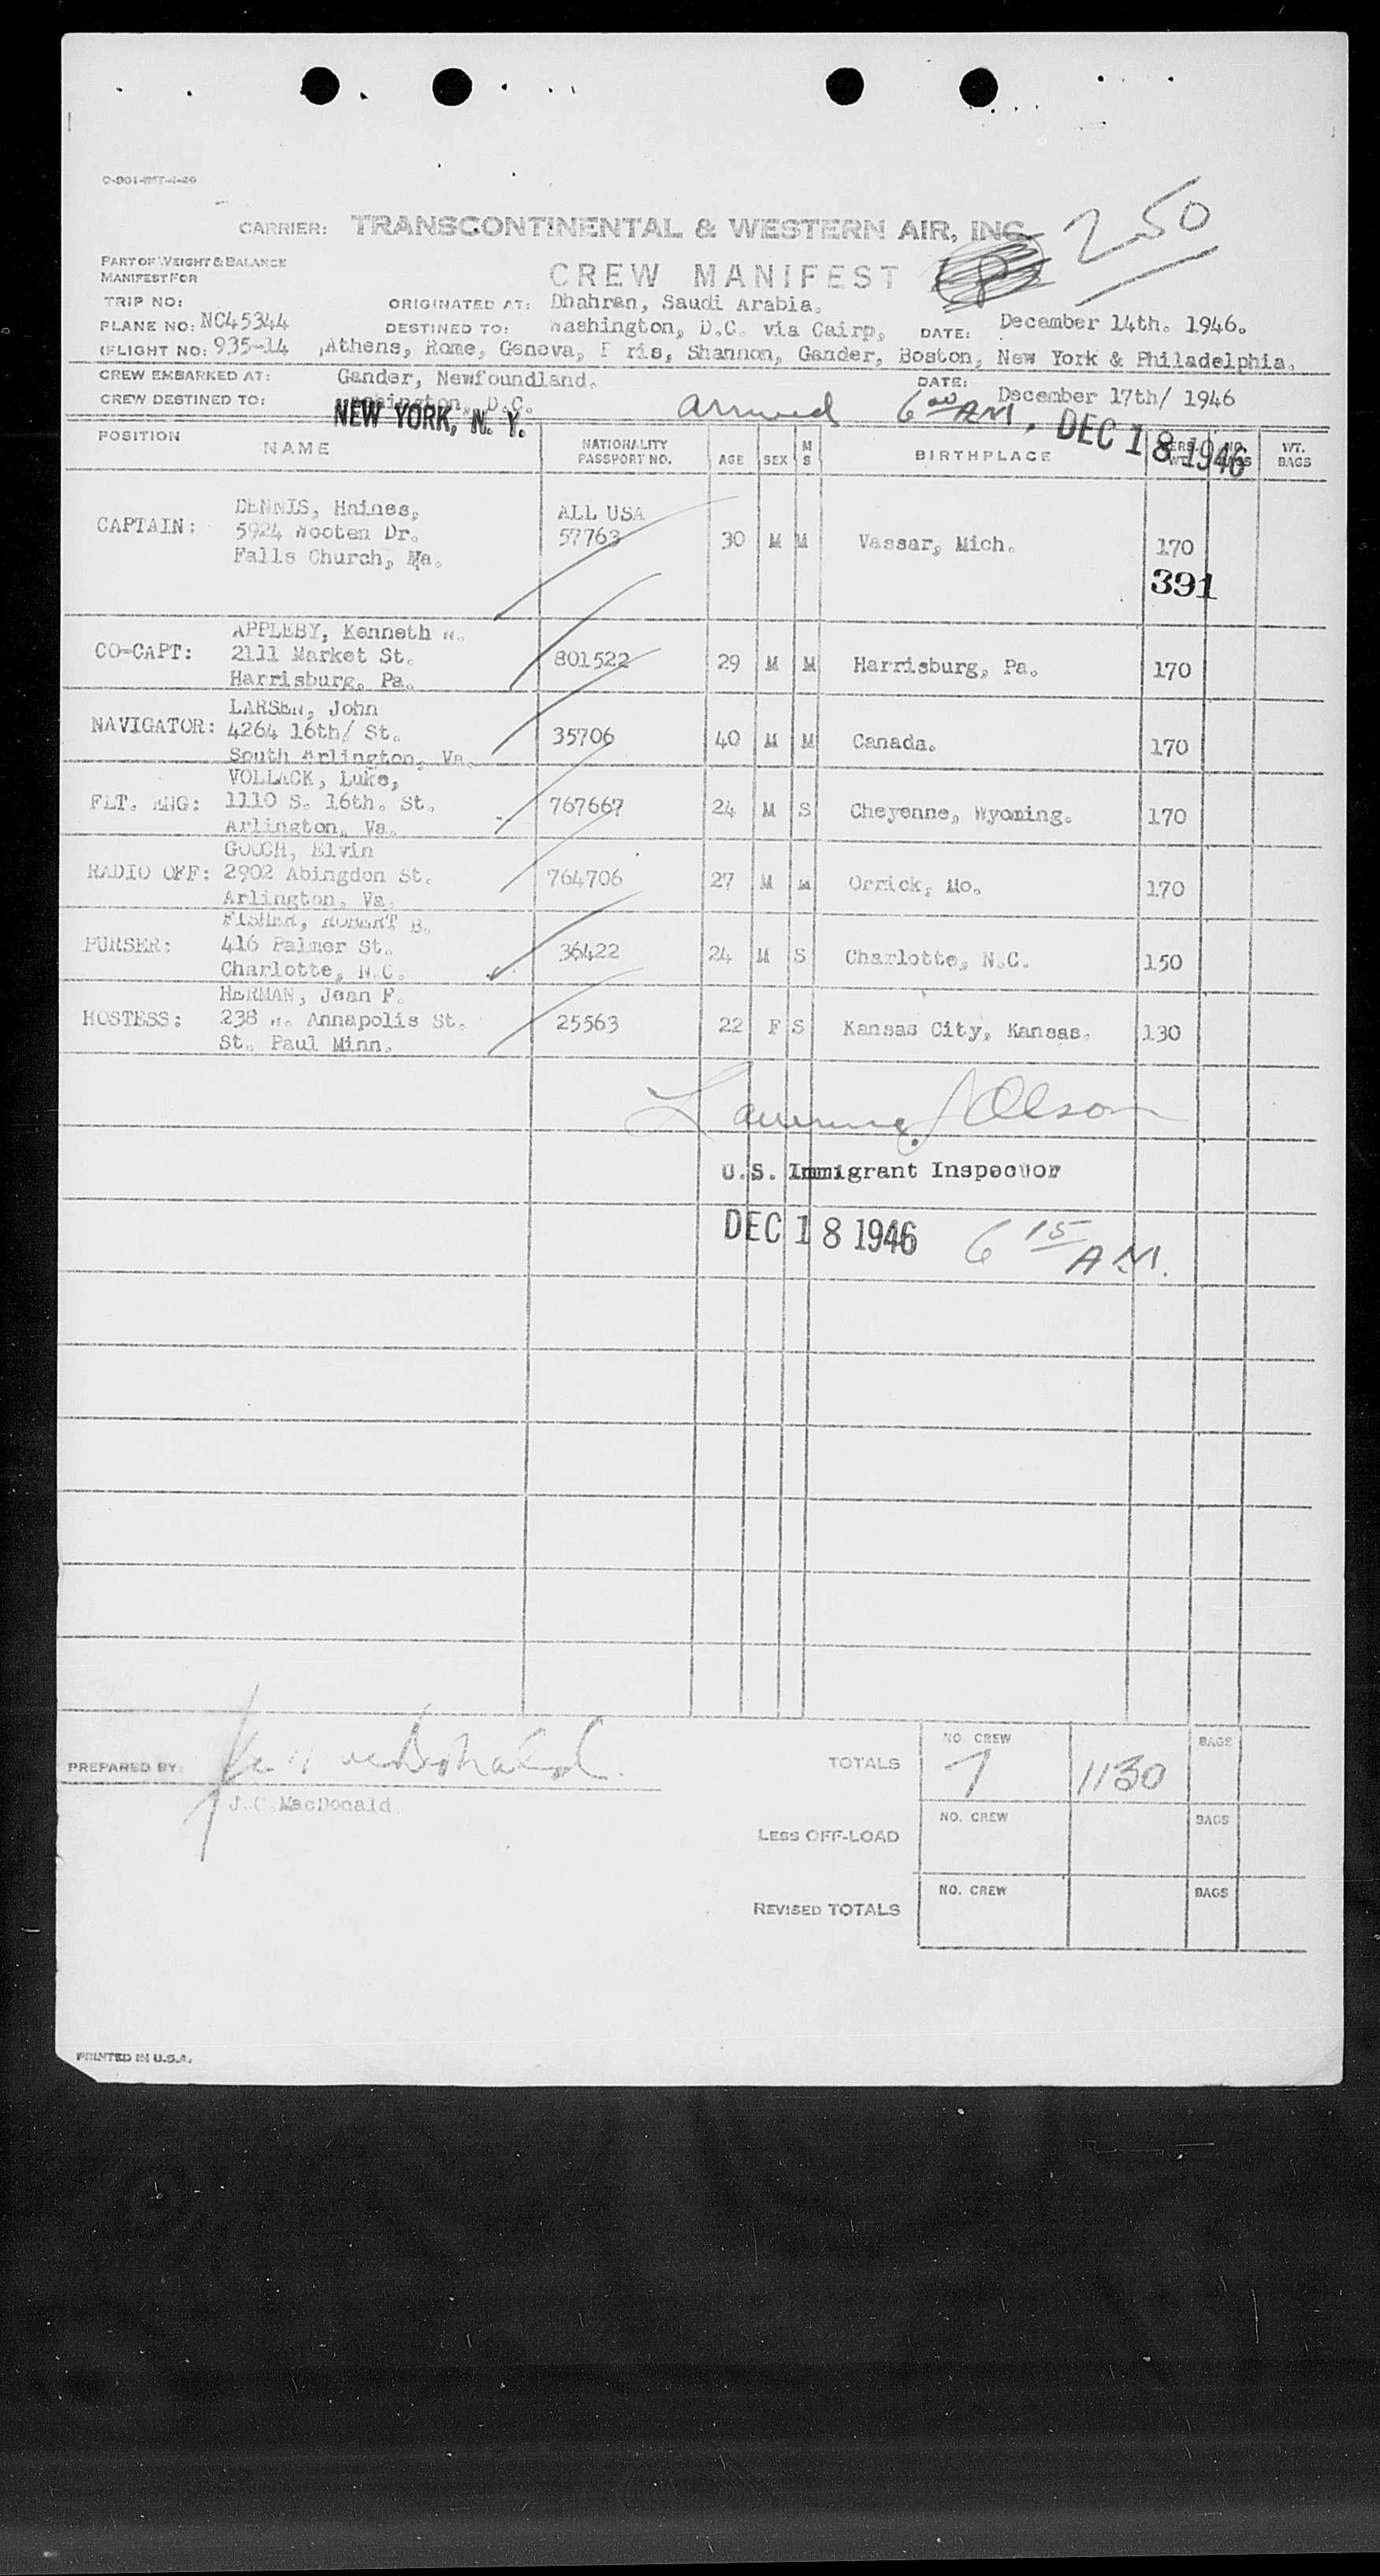 CARRIER: TRANSCONTINENTAL & WESTERN AIR, INC.
250
PART OF WEIGHT & BALANCE
MANIFEST FOR
CREW MANIFEST
TRIP NO:
ORIGINATED AT: Dhahran, Saudi Arabia.
PLANE NO: NC45344 DESTINED TO: Washington, D.C. via Cairp, DATE: December 14th. 1946.
FLIGHT NO: 935-14 ,Athens, Rome, Geneva, P ris, Shannon, Gander, Boston, New York & Philadelphia.
CREW EMBARKED AT: Gander, Newfoundland. DATE: December 17th/ 1946
CREW DESTINED TO: Washington, D.C.
NEW YORK, N. Y. arrived 6 00 AM, DEC 18 1946
POSITION NAME NATIONALITY PASSPORT NO. AGE SEX M S BIRTHPLACE PERS. WT. NO. BAGS WT. BAGS
DENNIS, Haines, ALL USA
CAPTAIN: 5924 Wooten Dr. 57763 30 M M Vassar, Mich. 170
Falls Church, Va.
391
APPLEBY, Kenneth W.
CO-CAPT: 2111 Market St. 801522 29 M M Harrisburg, Pa. 170
Harrisburg, Pa.
LARSEN, John
NAVIGATOR: 4264 16th/ St. 35706 40 M M Canada. 170
South Arlington, Va.
VOLLACK, Luke,
FLT. ENG: 1110 S. 16th. St. 767667 24 M S Cheyenne, Wyoming. 170
Arlington, Va.
GOOCH, Elvin
RADIO OFF: 2902 Abingdon St. 764706 27 M M Orrick, Mo. 170
Arlington, Va.
FISHER, ROBERT B.
PURSER: 416 Palmer St. 36422 24 M S Charlotte, N.C. 150
Charlotte, N.C.
HERMAN, Jean F.
HOSTESS: 238 W. Annapolis St. 25563 22 F S Kansas City, Kansas. 130
St. Paul Minn.
Lawrence J Olson
U.S. Immigrant Inspector
DEC 18 1946 6 15 AM.
PREPARED BY: TOTALS NO. CREW 7 1130 BAGS
J.C.MacDonald
LESS OFF-LOAD NO. CREW BAGS
REVISED TOTALS NO. CREW BAGS
PRINTED IN U.S.A.